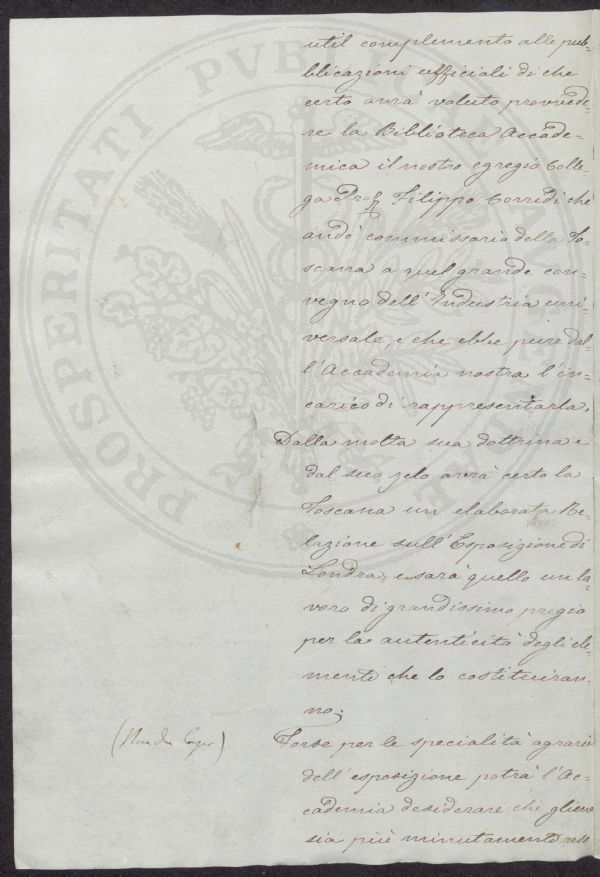 util complemento alle pub-
blicazioni ufficiali di che
certo avrà voluto provvede-
re la Biblioteca Accade-
mica il nostro egregio Colle-
ga Prof. Filippo Corridi che
andò commissario della To-
scana a quel grande con-
vegno dell'Industria uni-
versale, e che ebbe pure dal-
l'Accademia nostra l'in-
carico di rappresentarla.
Dalla molta sua dottrina e
dal suo zelo avrà certo la
Toscana un elaborata Re-
lazione sull'Esposizione di
Londra, e sarà quello un la-
voro di grandissimo pregio
per la autenticità degli ele-
menti che lo costituiran-
no.
Forse per le specialità agrarie
dell'esposizione potrà l'Ac-
cademia desiderare che gliene
sia più minutamente reso
PROSPERITATI PVBLICAE AVGENDAE